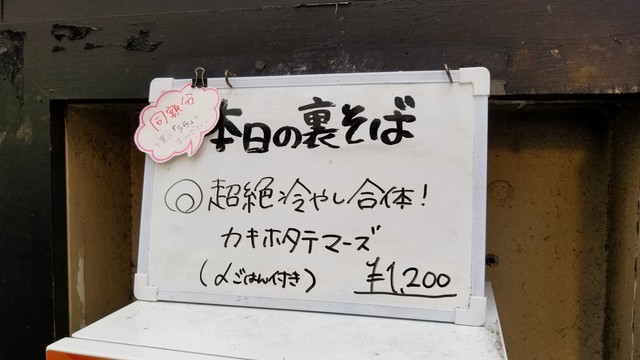 本日の裏そば
同額分
◎超絶冷やし合体!
カキホタテマーズ
(〆ごはん付き)
¥1,200